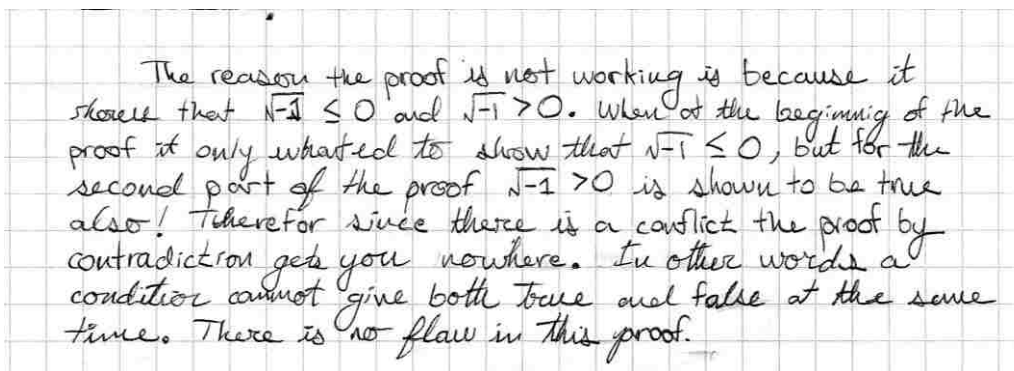 The reason the proof is not working is because it
shows that √-1 ≤ 0 and √-1 > 0. When at the beginnig of the
proof it only whated to show that √-1 ≤ 0, but for the
second part of the proof √-1 > 0 is shown to be true
also! Therefor since there is a conflict the proof by
contradiction gets you nowhere. In other words a
condition cannot give both true and false at the same
time. There is no flaw in this proof.